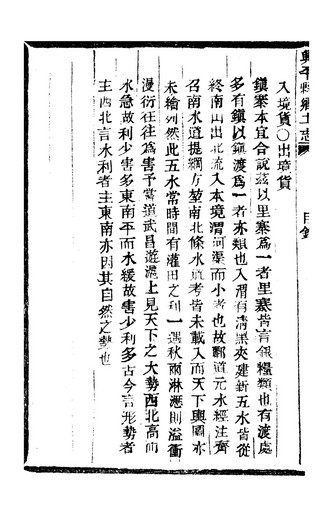 興平縣鄉土志
目錄
入境貨〇出境貨
鎮寨本宜合說茲以里寨爲一者里寨皆言銀糧類也有渡處
多有鎮以鎮渡爲一者亦類也入渭有清黑夾建新五水皆從
終南山出北流入本境渭河渠而小者也故酈道元水經注齊
召南水道提綱方堃南北條水道考皆未載入而天下輿圖亦
未繪列然此五水當時間有灌田之利一遇秋雨淋漶則溢衝
漫衍往往爲害予嘗道武昌遊滬上見天下之大勢西北高而
水急故利少害多東南平而水緩故害少利多古今言形勢者
主西北言水利者主東南亦因其自然之勢也